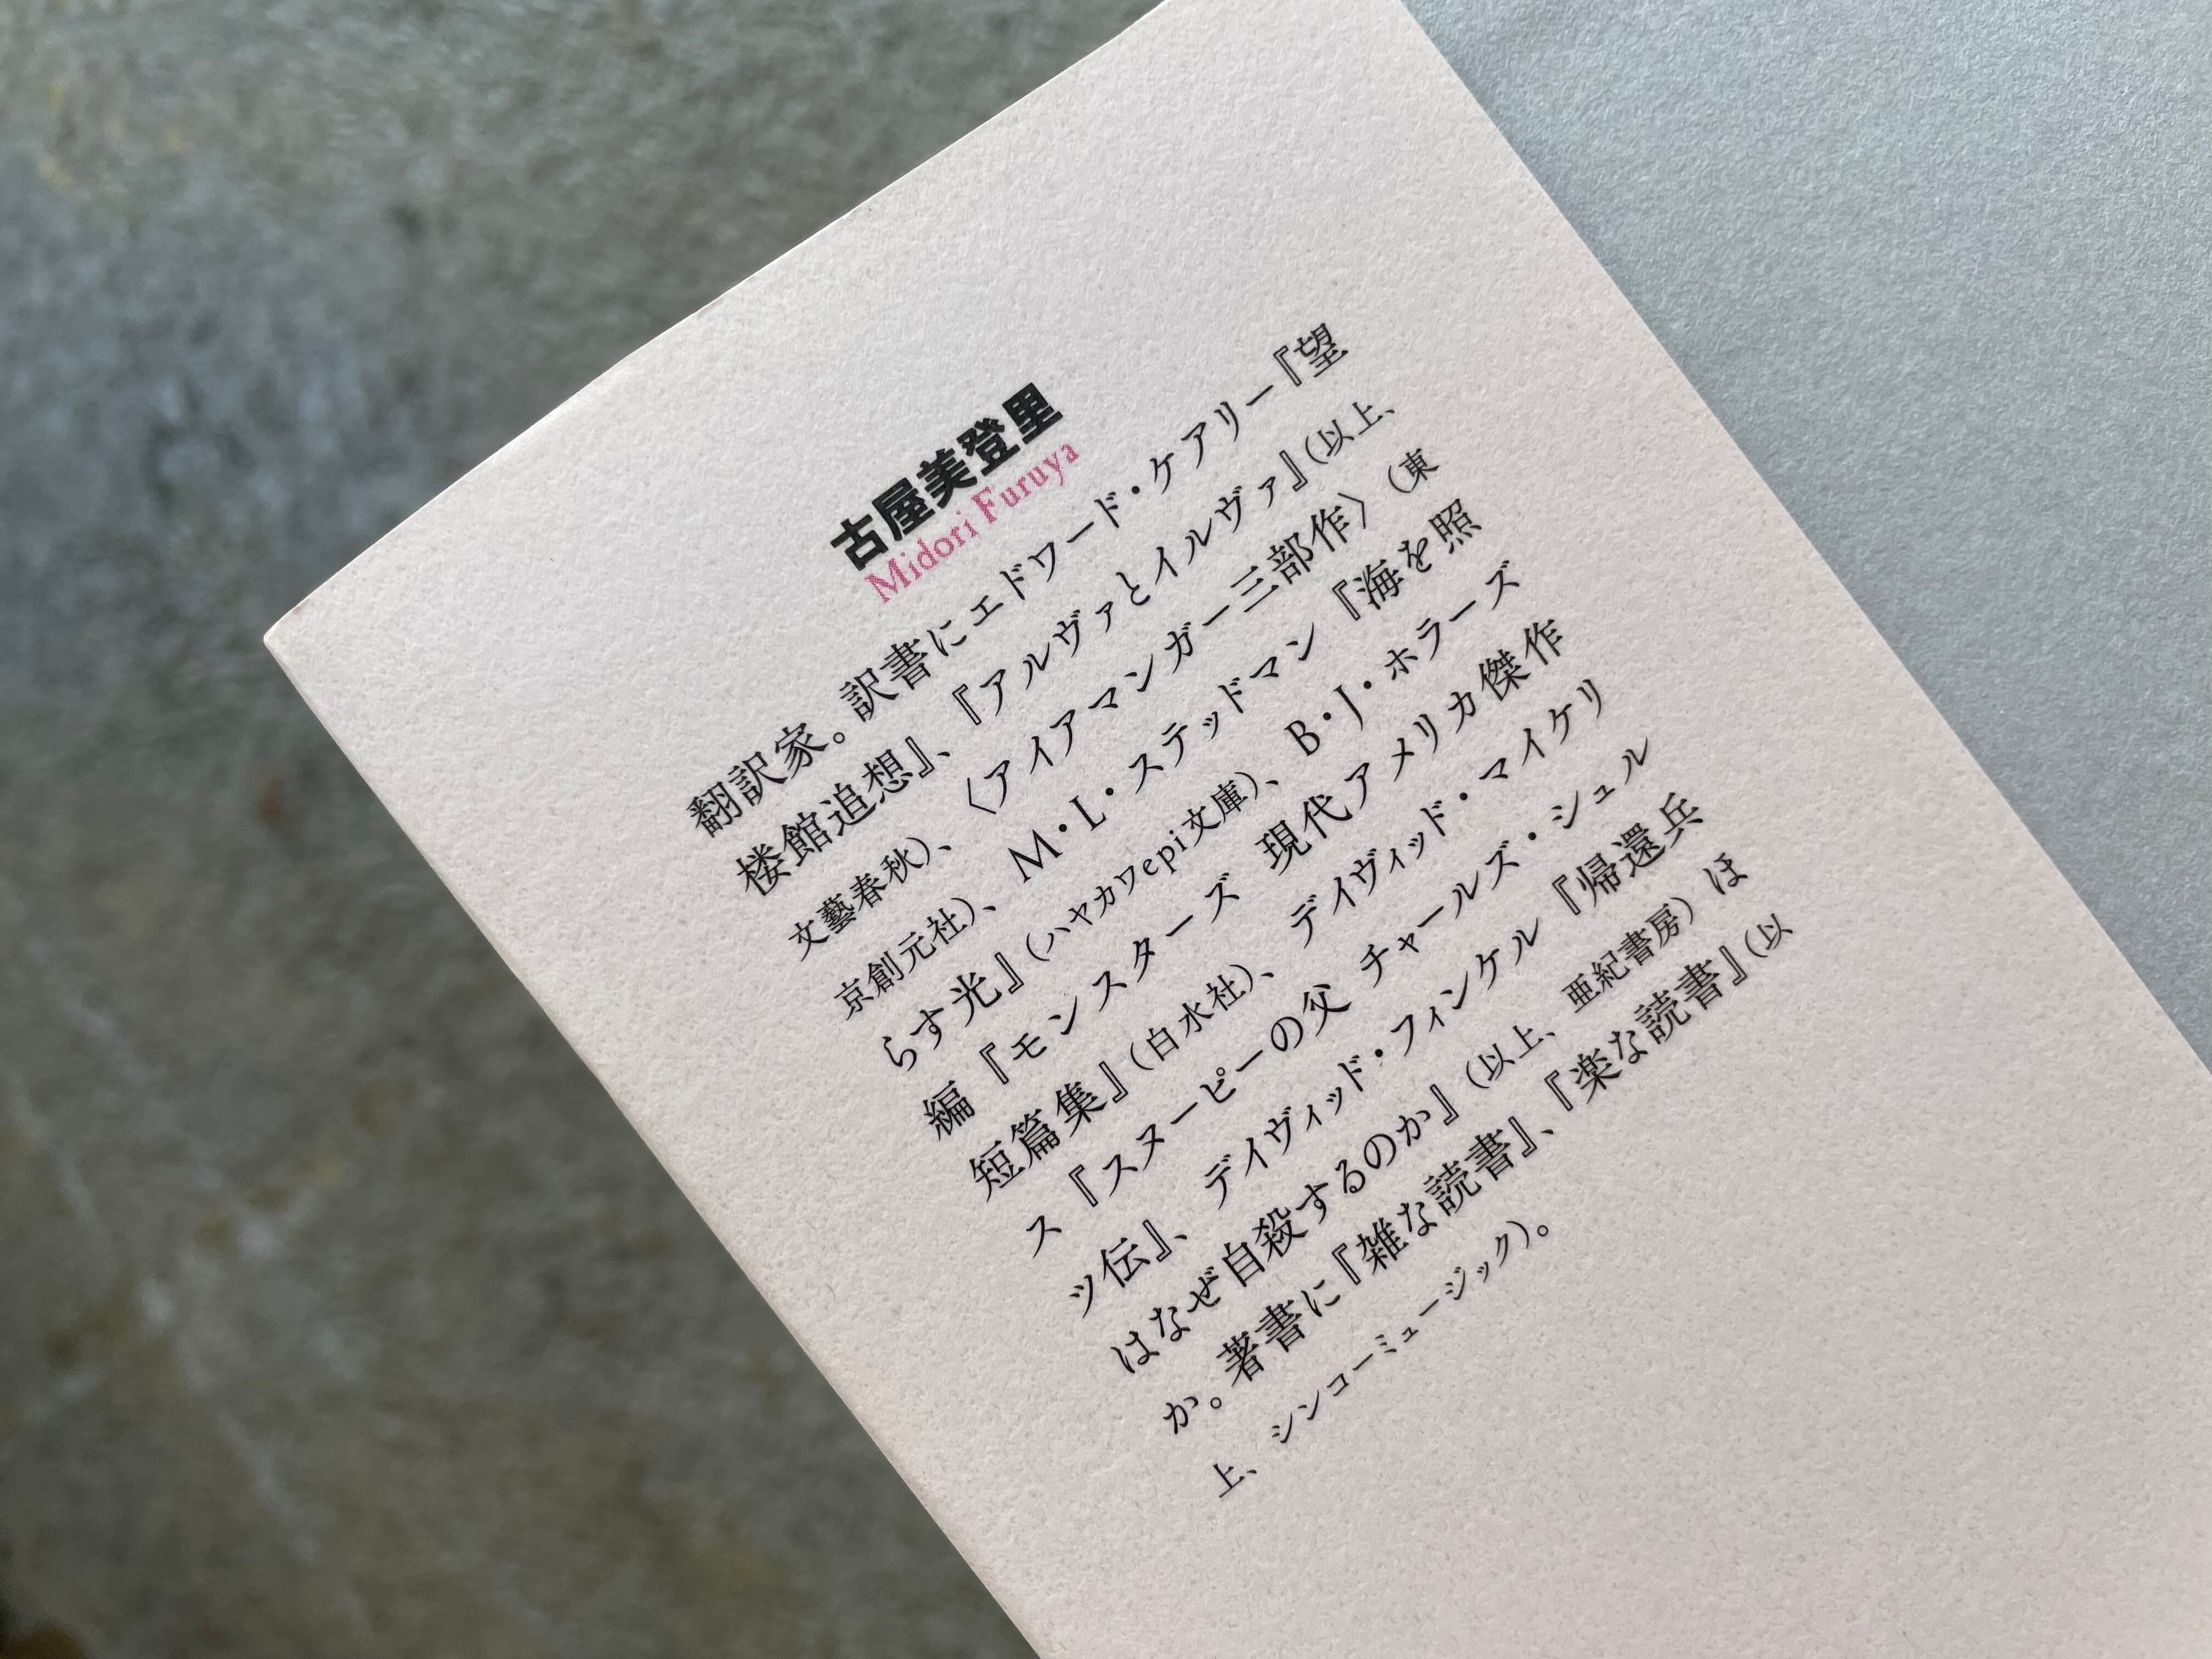 古屋美登里
Midori Furuya
翻訳家。訳書にエドワード・ケアリー『望
楼館追想』、『アルヴァとイルヴァ』（以上、
文藝春秋）、〈アイアマンガー三部作〉（東
京創元社）、M・L・ステッドマン『海を照
らす光』（ハヤカワepi文庫）、B・J・ホラーズ
編『モンスターズ 現代アメリカ傑作
短篇集』（白水社）、デイヴィッド・マイケリ
ス『スヌーピーの父 チャールズ・シュル
ツ伝』、デイヴィッド・フィンケル『帰還兵
はなぜ自殺するのか』（以上、亜紀書房）ほ
か。著書に『雑な読書』、『楽な読書』（以
上、シンコーミュージック）。